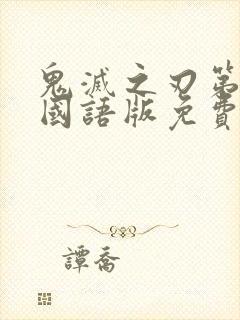 鬼滅之刃第
國語版免費
譚喬